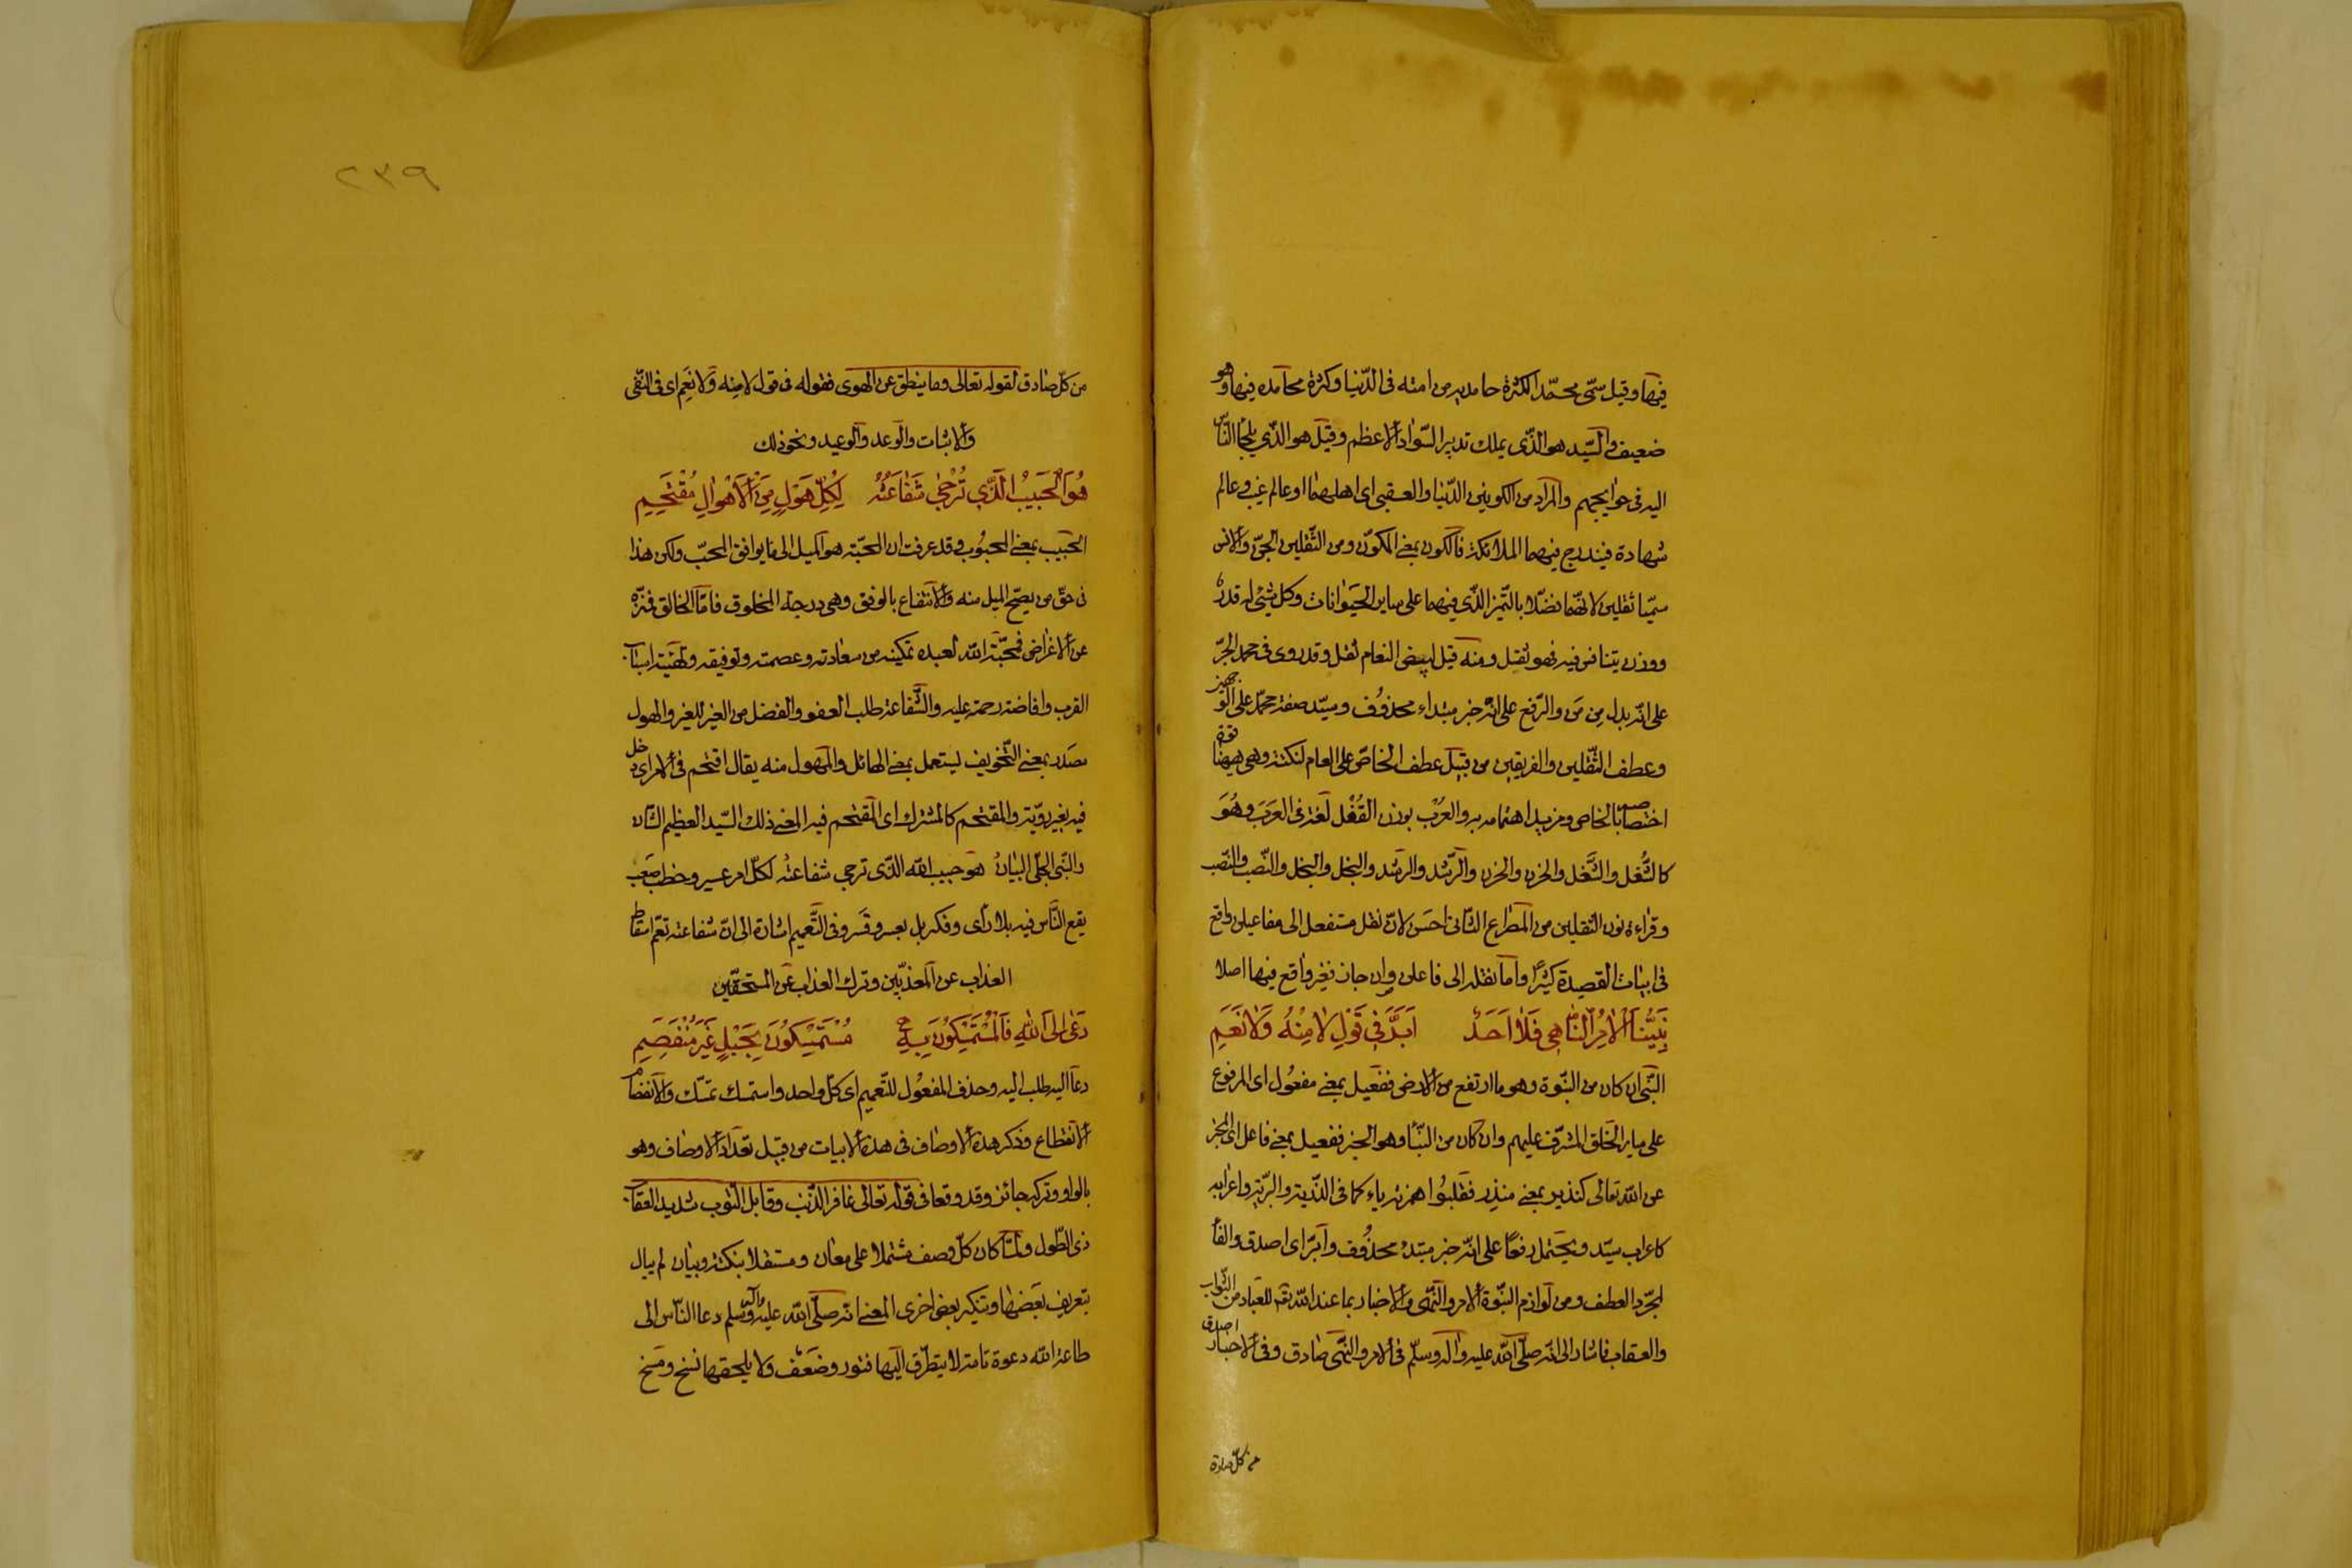 فيها وقيل سمّى محمّدا لكثرة حامديه من امته فى الدّنيا وكثرة محامده فيها وهو
ضعيف والسّيد هو الذّى يملك تدبير السّواد الاعظم وقيل هو الذّى يلجأ النّاس
اليه فى حوايجهم والمراد من الكونين الدّنيا والعقبى اى اهلهما او عالم غيب وعالم
شهادة فيندرج فيهما الملائكة فالكون بمعنى المكوّن ومن الثّقلين الجنّ والانس
سمّيا ثقلين لانّهما فضّلا بالتّميز الذّى فيهما على ساير الحيوانات وكل شئ له قدر
ووزن يتنافس فيه فهو ثقيل ومنه قيل لبيض النعام ثقل وقد روى فى محمد الجرّ
على انّه بدل من مَن والرّفع على انّه خبر مبتداء محذوف وسيّد صفة محمّد على الوجهين
وعطف الثّقلين والفريقين من قبيل عطف الخاصّ على العام لنكتة وهى ههنا
اختصاصه بالخاص ومزيد اهتمامه به والعُرْب بوزن القُفْل لغة فى العَرَب وهُوَ
كالشُّغل والشَّغل والحزن والحزن والرّشد والرشد والبخل والبخل والنّصب والنّصب
وقراءة نون الثقلين من المصراع الثّانى احسَن لانّ نقل مستفعل الى مفاعيلن واقع
فى ابيات القصيدة كثيرًا واما نقله الى فاعلن وان جاز فغير واقع فيها اصلا
نَبِيُّنَا اْلاٰمِرُ النّاهِى فَلاٰ اَحَدٌ اَبَرَّ فِى قَوْلِ لاٰ مِنْهُ وَلاٰ نَعَمِ
النّبى ان كان من النبّوة وهو ما ارتفع من الارض ففعيل بمعنى مفعُول اى المرفوع
على ساير الخلق المشرّف عليهم وان كان من النبّأ وهو الخبر ففعيل بمعنى فاعل اى المخبر
عن اللّه تعالى كنذير بمعنى منذر فقلبُوا همزته ياء كما فى الذّرية والبريّة واعرابه
كاعراب سيّد ويحتمل رفعًا على انّه خبر مبتدء محذُوف وابرّ اى اصدق والفأ
لمجرّد العطف ومن لوازم النبّوة الامر والنّهى والاخبار بما عند اللّه تعالى للعباد من الثّواب
والعقاب فاشار الى انّه صلّى اللّه عليه واله وسلّم فى الامر والنّهى صادق وفى الاخبار اصدق
من كلّ صادق
٢٣٩
من كلّ صادق لقوله تعالى وما ينطق عن الهوى فقوله فى قول لا منه ولا نعم اى فى النّفى
والاثبات والوعد والوعيد ونحو ذلك
هُوَ الْحَبيٖبُ الَّذٖى تُرْجىٰ شَفٰاعَتُهُ لِكُلِّ هَوْلٍ مِنَ اْلاَهْوٰالِ مُقْتَحَمِ
الحبيب بمعنى المحبُوب وقد عرفت ان المحبّة هو الميل الى ما يوافق المحبّ ولكن هذا
فى حقّ من يصحّ الميل منه والانتفاع بالوفق وهى درجة المخلوق فامّا الخالق فمنزّه
عن الاغراض فمحبّة اللّه لعبده تمكينه من سعادته وعصمته وتوفيقه وتهيئة اسباب
القرب وافاضة رحمته عليه والشّفاعة طلب العفو والفضل من الغير للغير والهول
مصَدر بمعنى التّخويف ليستعمل بمعنى الهائل والمهول منه يقال اقتحم فى الامر اى دخل
فيه بغير رويّة والمقتحم كالمشترك اى المقتحم فيه المعنى ذلك السّيد العظيم الشّان
والنّبى الجلّى البيانُ هو حبيب اللّه الذّى ترجى شفاعتهُ لكلّ امر عسير وخطب صَعب
يقع النّاس فيه بلا رأى وفكر بل بعسر وقسر وفى التّعميم اشارة الى انّ شفاعته تعمّ اسقاط
العذاب عن المعذبّين وترك العذاب عن المستحقّين
دَعٰى اِلَى اللّٰهِ فَالْمُسْتَمْسِكُونَ بِهِ مُسْتَمْسِكُونَ بِحَبْلٍ غَيْرِ مُنْفَصِمِ
دعا اليه طلب اليه وحذف المفعُول للتّعميم اى كلّ واحد واستمسك تمسّك والانفصام
الانقطاع وذكر هذه الاوصاف فى هذه الابيات من قبيل تعداد الاوصاف وهو
بالواو وتركه جائز وقد وقعا فى قوله تعالى غافر الذّنب وقابل التّوب شديد العقاب
ذى الطّول ولمّا كان كلّ وصف مشتملا على معان ومستقلا بنكتة وبيان لم يبال
بتعريف بعضها وتنكير بعض اخرى المعنى انّه صلّى اللّه عليه وآله وسلم دعا النّاس الى
طاعة اللّه دعوة تامة لا يتطرّق اليها فتور وضعف ولا يلحقها نسخ ومسخ